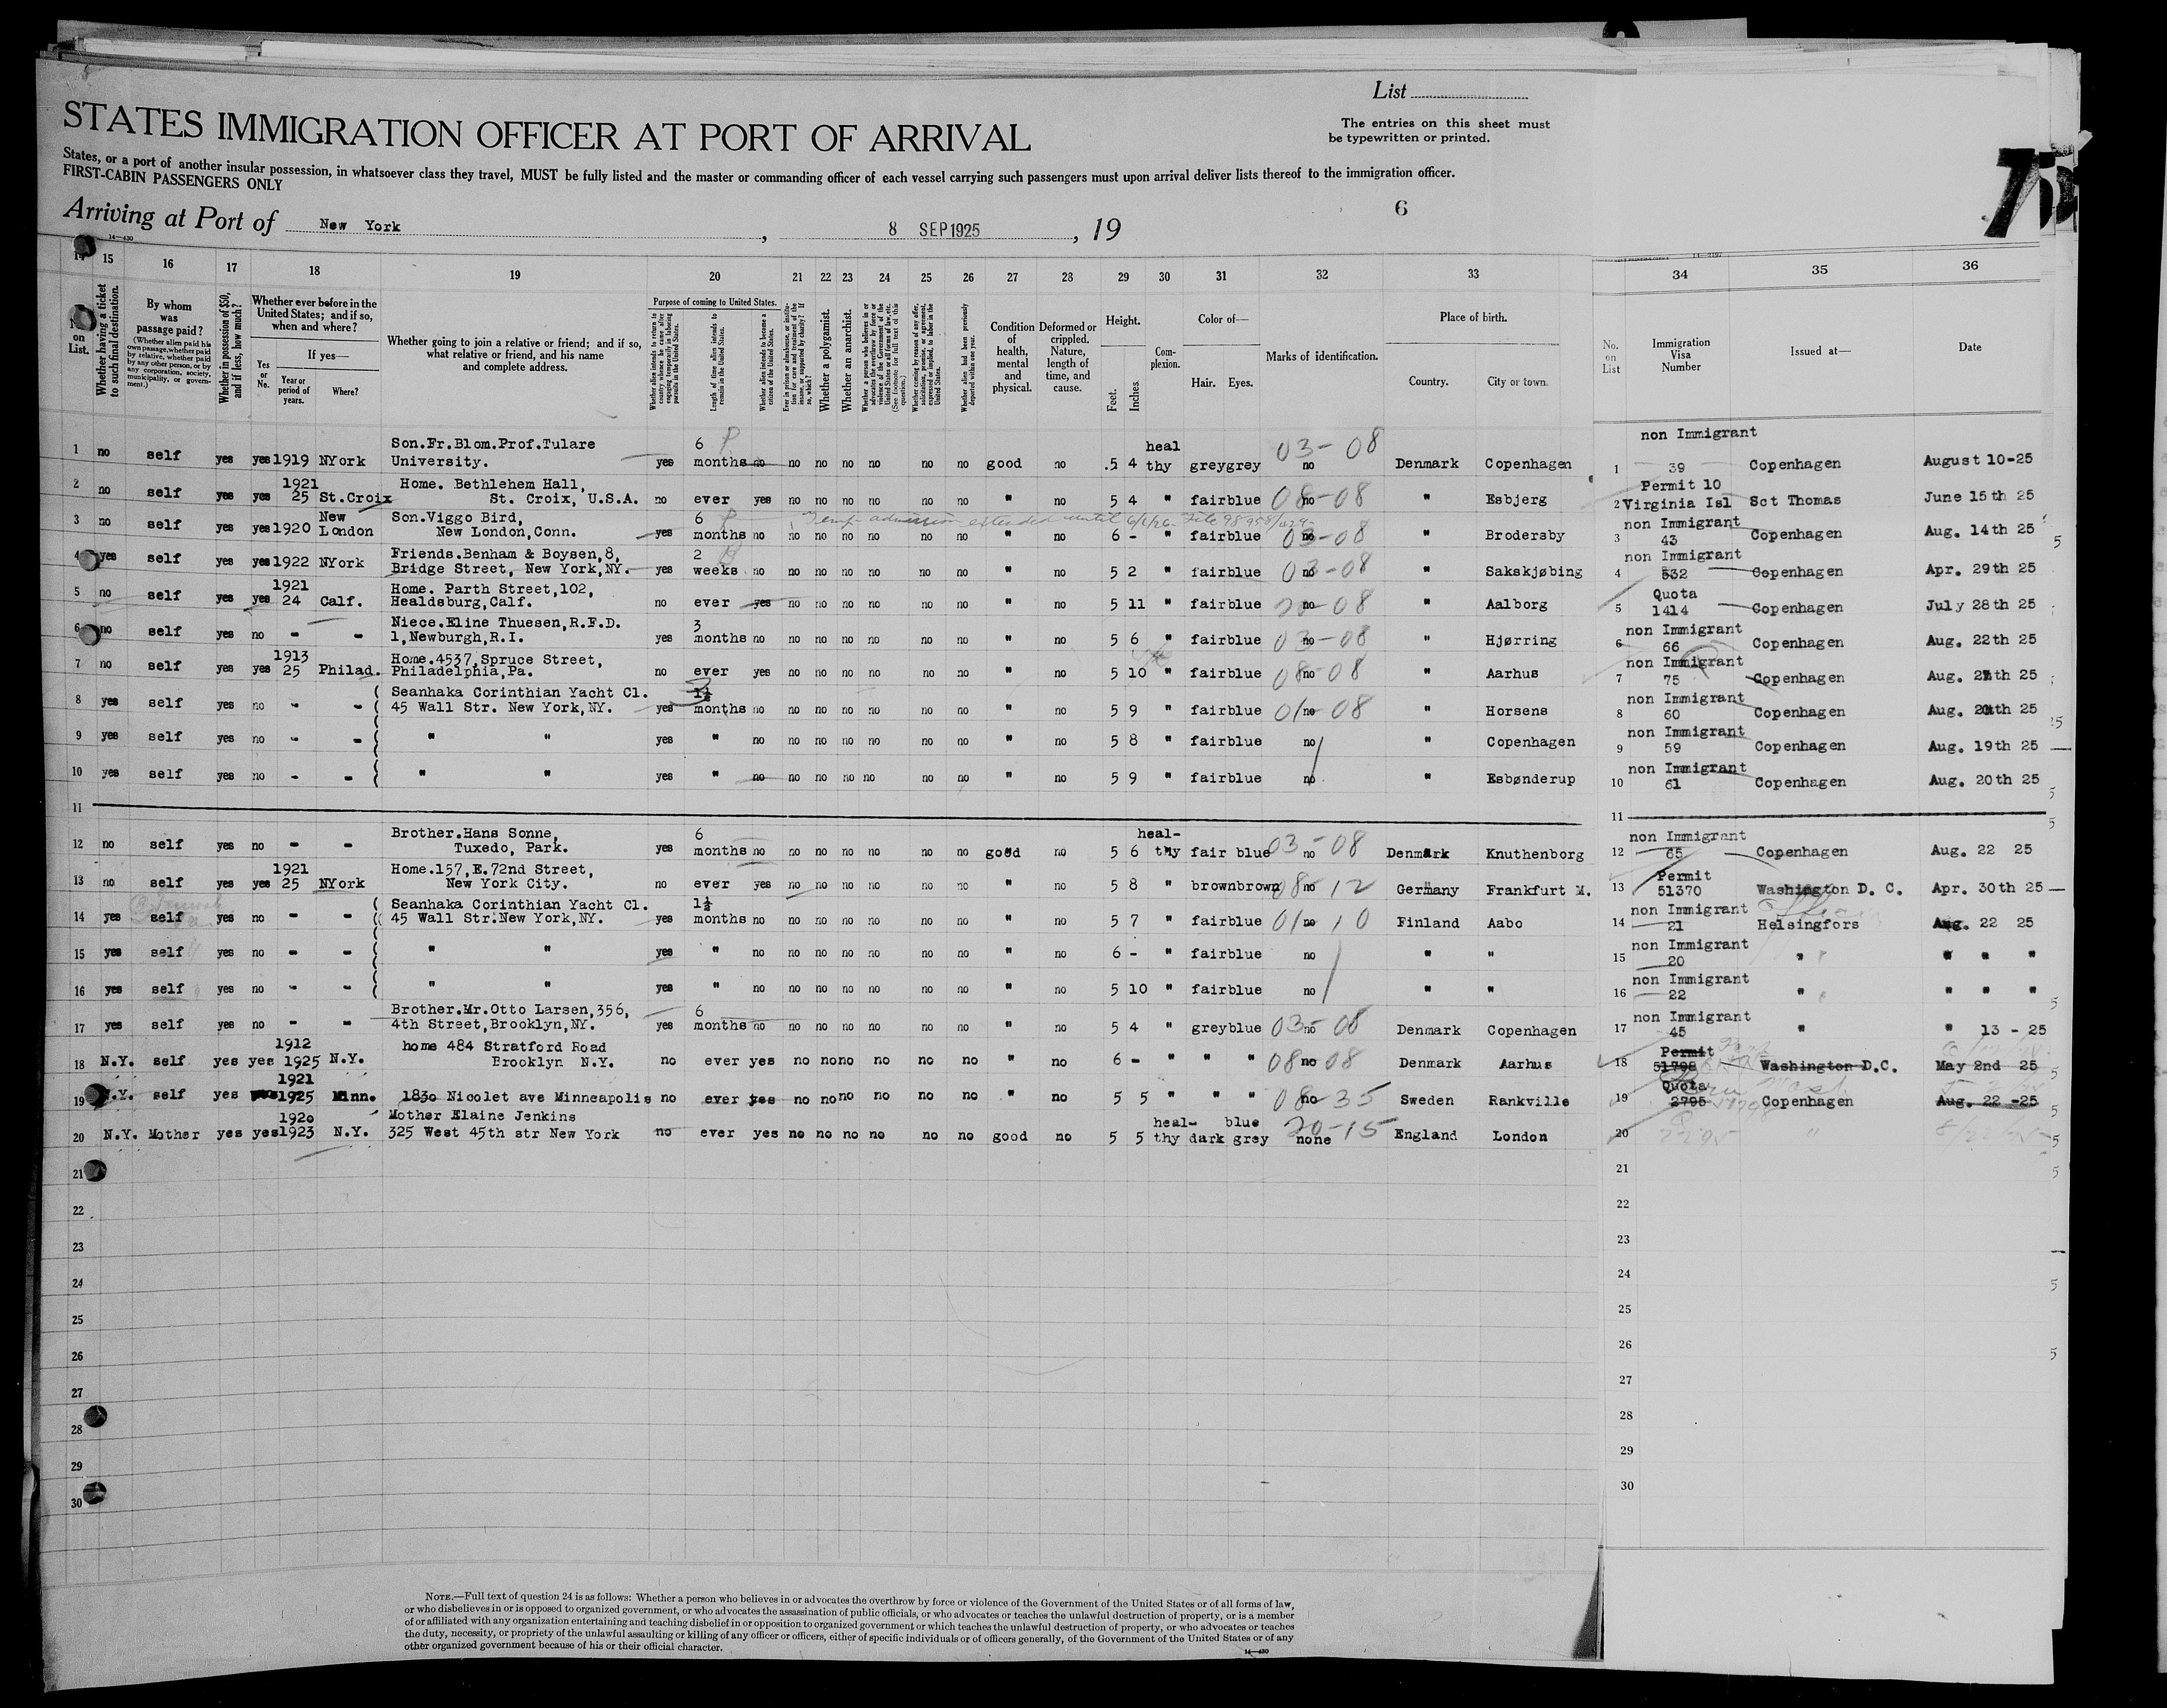 List
STATES IMMIGRATION OFFICER AT PORT OF ARRIVAL
The entries on this sheet must
be typewritten or printed.
States, or a port of another insular possession, in whatsoever class they travel, MUST be fully listed and the master or commanding officer of each vessel carrying such passengers must upon arrival deliver lists thereof to the immigration officer.
FIRST-CABIN PASSENGERS ONLY
75
6
Arriving at Port of New York, 8 SEP 1925, 19
14—430
14 15 16 17 18 19 20 21 22 23 24 25 26 27 28 29 30 31 32 33 34 35 36
on List.
Whether having a ticket to such final destination.
By whom was passage paid?
(Whether alien paid his own passage, whether paid by relative, whether paid by any other person, or by any corporation, society, municipality, or government.)
Whether in possession of $50, and if less, how much?
Whether ever before in the United States; and if so, when and where?
Yes or No.
If yes—
Year or period of years.
Where?
Whether going to join a relative or friend; and if so, what relative or friend, and his name and complete address.
Purpose of coming to United States.
Whether alien intends to return to country whence he came after engaging temporarily in laboring pursuits in the United States.
Length of time alien intends to remain in the United States.
Whether alien intends to become a citizen of the United States.
Ever in prison or almshouse, or institution for care and treatment of the insane, or supported by charity? If so, which?
Whether a polygamist.
Whether an anarchist.
Whether a person who believes in or advocates the overthrow by force or violence of the Government of the United States or all forms of law, etc. (See footnote for full text of this question.)
Whether coming by reason of any offer, solicitation, promise, or agreement, expressed or implied, to labor in the United States.
Whether alien had been previously deported within one year.
Condition of health, mental and physical.
Deformed or crippled. Nature, length of time, and cause.
Height.
Feet. Inches.
Complexion.
Color of—
Hair. Eyes.
Marks of identification.
Place of birth.
Country. City or town.
No. on List
Immigration Visa Number
Issued at—
Date
Son.Fr.Blom.Prof.Tulare 6 heal 03-08 non Immigrant
1 no self yes yes 1919 NYork University. yes months no no no no no no no good no 5 4 thy grey grey no Denmark Copenhagen 1 39 Copenhagen August 10-25
1921 Home. Bethlehem Hall, Permit 10
2 no self yes yes 25 St.Croix St. Croix, U.S.A. no ever yes no no no no no no " no 5 4 " fair blue 08-08 no " Esbjerg 2 Virginia Isl Sct Thomas June 15th 25
New Son.Viggo Bird, 6 Temp admission extended until 6/1/26 File 98958/429 non Immigrant
3 no self yes yes 1920 London New London,Conn. yes months no no no no no no no " no 6 - " fair blue 03-08 no " Brodersby 3 43 Copenhagen Aug. 14th 25
Friends.Benham & Boysen,8, 2 non Immigrant
4 yes self yes yes 1922 NYork Bridge Street, New York,NY. yes weeks no no no no no no no " no 5 2 " fair blue 03-08 no " Sakskjøbing 4 532 Copenhagen Apr. 29th 25
1921 Home. Parth Street,102, Quota
5 no self yes yes 24 Calf. Healdsburg,Calf. no ever yes no no no no no no " no 5 11 " fair blue 20-08 no " Aalborg 5 1414 Copenhagen July 28th 25
Niece.Eline Thuesen,R.F.D. 3 non Immigrant
6 no self yes no - - 1,Newburgh,R.I. yes months no no no no no no no " no 5 6 " fair blue 03-08 no " Hjørring 6 66 Copenhagen Aug. 22th 25
1913 Home.4537,Spruce Street, non Immigrant
7 no self yes yes 25 Philad. Philadelphia,Pa. no ever yes no no no no no no " no 5 10 " fair blue 08-08 no " Aarhus 7 75 Copenhagen Aug. th 25
Seanhaka Corinthian Yacht Cl. 1½ 3 non Immigrant
8 yes self yes no - - 45 Wall Str. New York,NY. yes months no no no no no no no " no 5 9 " fair blue 01-08 no " Horsens 8 60 Copenhagen Aug. 20th 25
non Immigrant
9 yes self yes no - - " " yes " no no no no no no no " no 5 8 " fair blue no " Copenhagen 9 59 Copenhagen Aug. 19th 25
non Immigrant
10 yes self yes no - - " " yes " no no no no no no no " no 5 9 " fair blue no " Esbønderup 10 61 Copenhagen Aug. 20th 25
11 11
Brother.Hans Sonne, 6 heal- non Immigrant
12 no self yes no - - Tuxedo, Park. yes months no no no no no no no good no 5 6 thy fair blue 03-08 no Denmark Knuthenborg 12 65 Copenhagen Aug. 22 25
1921 Home.157,E.72nd Street, Permit
13 no self yes yes 25 NYork New York City. no ever yes no no no no no no " no 5 8 " brown brown 08-12 no Germany Frankfurt M. 13 51370 Washington D. C. Apr. 30th 25
Seanhaka Corinthian Yacht Cl. 1½ non Immigrant
14 yes self yes no - - 45 Wall Str.New York,NY. yes months no no no no no no no " no 5 7 " fair blue 01-10 no Finland Aabo 14 21 Helsingfors Aug. 22 25
non Immigrant
15 yes self yes no - - " " yes " no no no no no no no " no 6 - " fair blue no " " 15 20 " " " "
non Immigrant
16 yes self yes no - - " " yes " no no no no no no no " no 5 10 " fair blue no " " 16 22 " " " "
Brother.Mr.Otto Larsen,356, 6 non Immigrant
17 yes self yes no - - 4th Street,Brooklyn,NY. yes months no no no no no no no " no 5 4 " grey blue 03-08 no Denmark Copenhagen 17 45 " " 13 - 25
1912 home 484 Stratford Road Permit
18 N.Y. self yes yes 1925 N.Y. Brooklyn N.Y. no ever yes no no no no no no " no 6 - " " " 08-08 no Denmark Aarhus 18 51798 Washington D.C. May 2nd 25
1921 Quota
19 N.Y. self yes 1925 Minn. 1830 Nicolet ave Minneapolis no ever yes no no no no no no " no 5 5 " " " 08-35 no Sweden Rankville 19 2795 Copenhagen Aug. 22 -25
1920 Mother Elaine Jenkins heal- blue 20-15
20 N.Y. Mother yes yes 1923 N.Y. 325 West 45th str New York no ever yes no no no no no no good no 5 5 thy dark grey none England London 20
21 21
22 22
23 23
24 24
25 25
26 26
27 27
28 28
29 29
30 30
NOTE.—Full text of question 24 is as follows: Whether a person who believes in or advocates the overthrow by force or violence of the Government of the United States or of all forms of law,
or who disbelieves in or is opposed to organized government, or who advocates the assassination of public officials, or who advocates or teaches the unlawful destruction of property, or is a member
of or affiliated with any organization entertaining and teaching disbelief in or opposition to organized government or which teaches the unlawful destruction of property, or who advocates or teaches
the duty, necessity, or propriety of the unlawful assaulting or killing of any officer or officers, either of specific individuals or of officers generally, of the Government of the United States or of any
other organized government because of his or their official character.
14—430